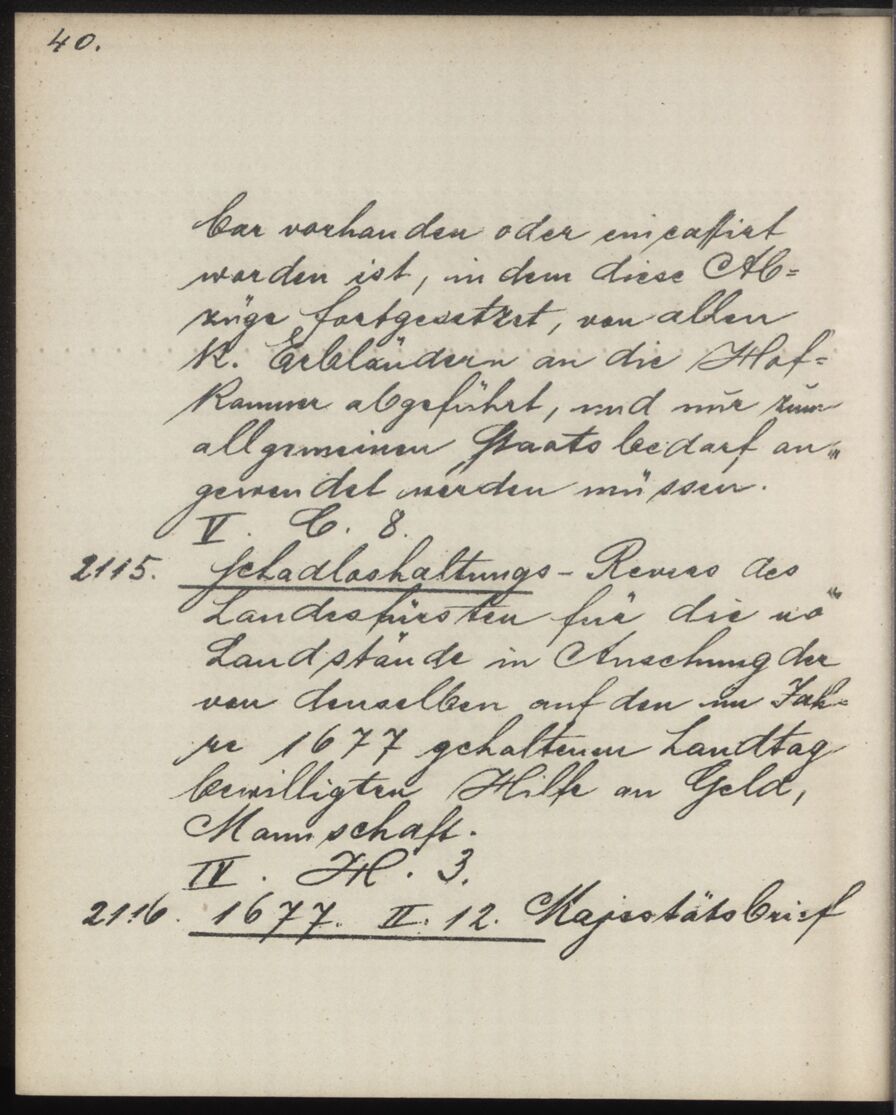 40.
bar vorhanden oder eincassirt
worden ist, in dem diese Ab=
züge fortgesetzet, von allen
k. Erbländern an die Hof=
kammer abgeführt, und nur zum
allgemeinen Staatsbedarf an„
gewendet werden müssen.
V. C. 8.
2115. Schadloshaltungs - Revers des
Landesfürsten für die nö
Landstände in Ansehung der
von denselben auf den im Jah=
re 1677 gehaltenen Landtag
bewilligten Hilfe an Geld,
Mannschaft.
IV. H. 3.
2116. 1677. II. 12. Majestätsbrief